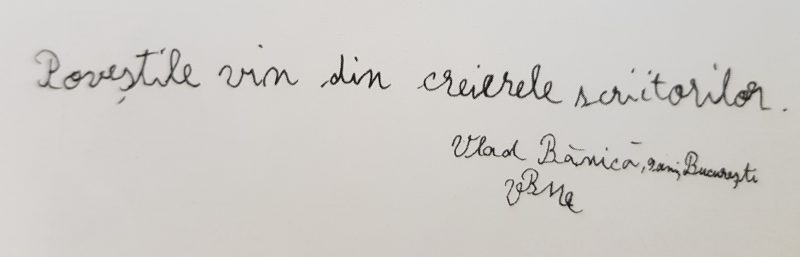 Poveștile vin din creierele scriitorilor.
Vlad Bănică, 9 ani, București